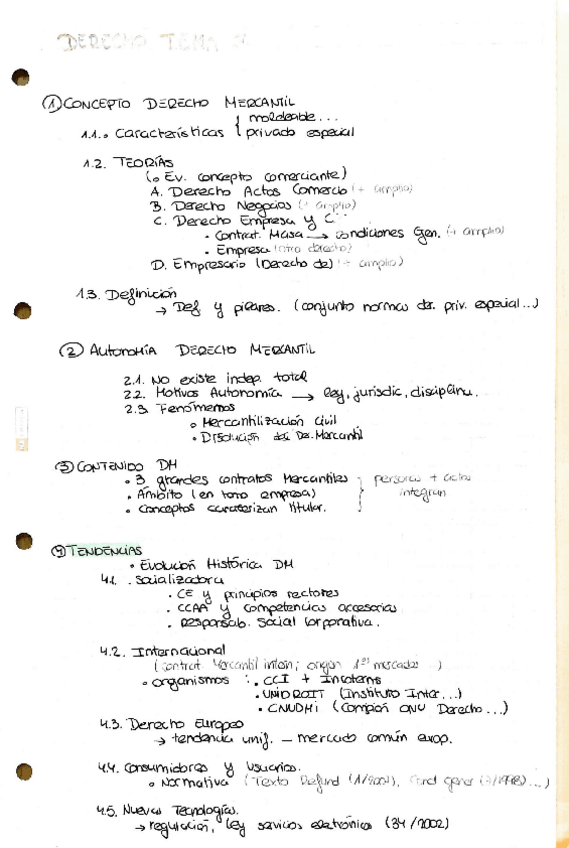 DERECHO TEMA
① CONCEPTO DERECHO MERCANTIL
1.1. • Características { moldeable...
privado especial
1.2. TEORÍAS
(• Ev. concepto comerciante)
A. Derecho Actos Comercio (+ amplio)
B. Derecho Negocios (+ amplio)
C. Derecho Empresa y C
• Contrat. Masa → condiciones Gen. (+ amplio)
• Empresa (otro directo)
D. Empresario (Derecho de) (+ amplio)
1.3. Definición
→ Def y pilares. (conjunto normas de. priv. especial...)
② AUTONOMÍA DERECHO MERCANTIL
2.1. No existe indep. total
2.2. Motivos Autonomía → ley, jurisdic, disciplina.
2.3. Fenómenos
• Mercantilización Civil
• Disolución del De. Mercantil
③ CONTENIDO DH
• 3 grandes contratos Mercantiles } personas + actos
• Ámbito (en torno empresa) integran
• Conceptos caracterizan titular.
④ TENDENCIAS
• Evolución Histórica DM
4.1. . Socializadora
• CE y principios rectores
• CCAA y competencias accesorias
• Responsab. Social Corporativa.
4.2. Internacional
(contrat. Mercantil intern; origen 1ºs mercados )
• organismos : . CCI + Incoterms
• UNIDROIT (Instituto Inter...)
• CNUDMI (Comisión ONU Derecho...)
4.3. Derecho Europeo
→ tendencia unif. — mercado común europ.
4.4. Consumidores y Usuarios.
• Normativa (Texto Refund (1/2007), Cond gener (7/1998)...)
4.5. Nuevas Tecnologías.
→ regulación, ley servicios electrónicos (34/2002)